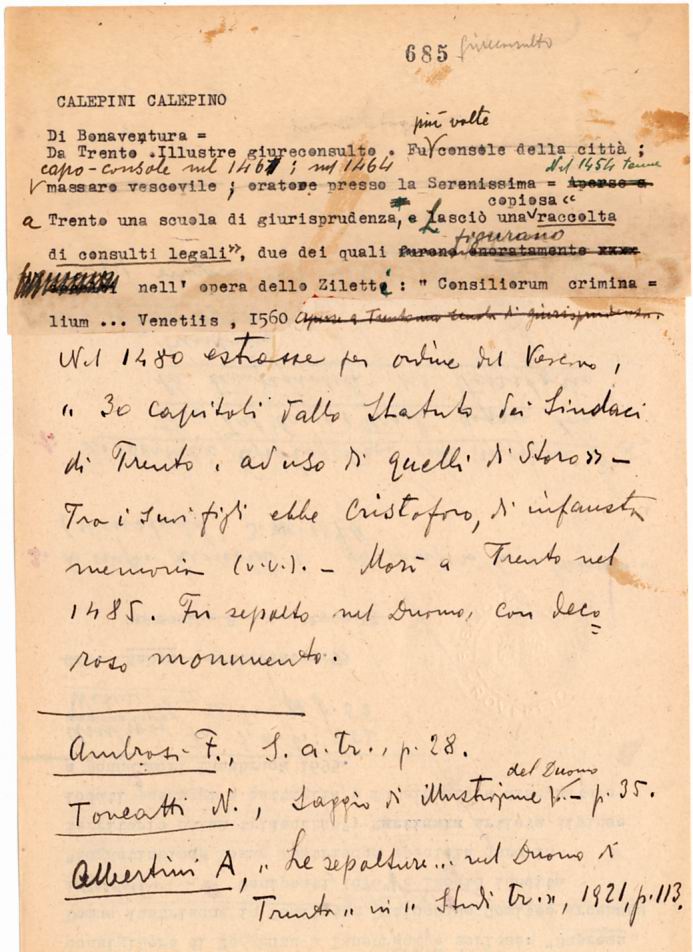 685 giureconsulto
CALEPINI CALEPINO
Di Bonaventura =
più volte
Da Trento .Illustre giureconsulto . Fu console della città ;
capo-console nel 1461 ; nel 1464 Nel 1454 tenne
massaro vescovile ; oratore presso la Serenissima = aperse a
copiosa "
a Trento una scuola di giurisprudenza, e lasciò una raccolta
figurano
di consulti legali", due dei quali furono onoratamente xxxx
nell' opera dello Ziletti : " Consiliorum crimina =
lium ... Venetiis , 1560 aperse a Trento una scuola di giurisprudenza.
Nel 1480 estrasse per ordine del Vescovo,
" 30 capitoli dallo Statuto dei Sindaci
di Trento, ad uso di quelli di Storo» —
Tra i suoi figli ebbe Cristoforo, di infausta
memoria (v.v.). — Morì a Trento nel
1485. Fu sepolto nel Duomo, con deco
roso monumento.
Ambrosi F., S. a. tr., p. 28.
del Duomo
Toneatti N., Saggio di illustrazione — p. 35.
Albertini A, " Le sepolture... nel Duomo di
Trento " in " Studi tr.», 1921, p. 113.